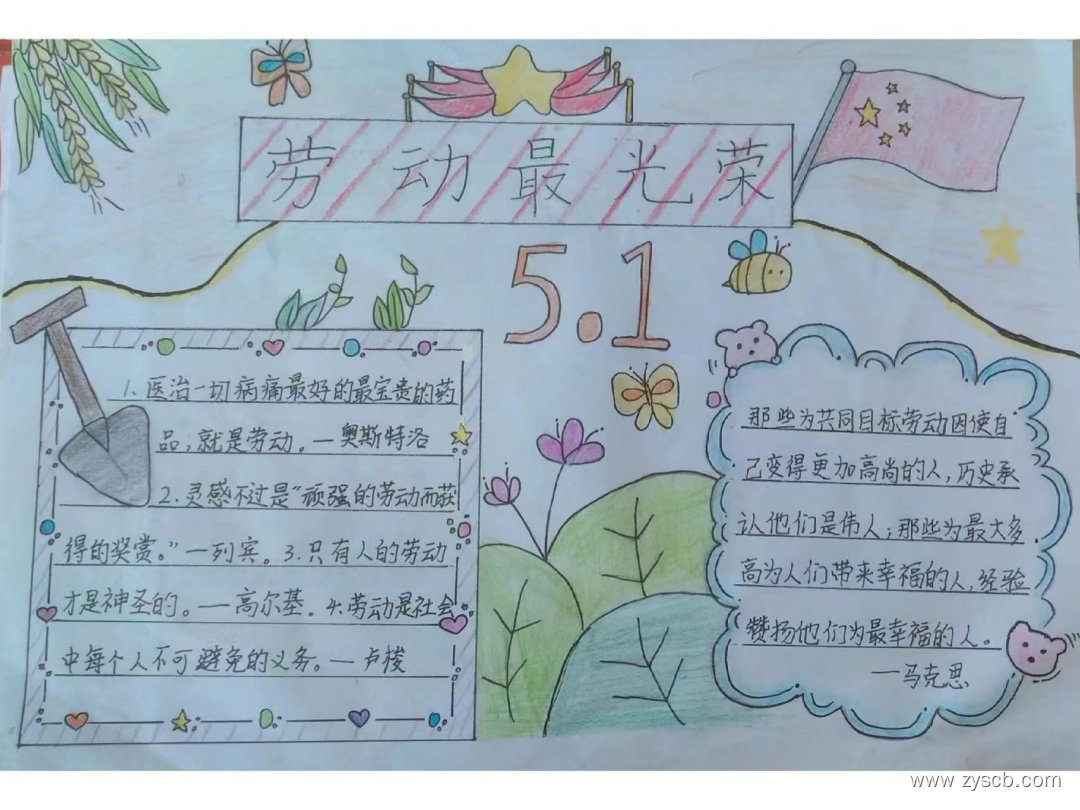 劳动最光荣
5.1
1.医治一切病痛最好的最宝贵的药
品,就是劳动。—奥斯特洛
2.灵感不过是"顽强的劳动而获
得的奖赏。"—列宾。3.只有人的劳动
才是神圣的。—高尔基。4.劳动是社会
中每个人不可避免的义务。—卢梭
那些为共同目标劳动因使自
己变得更加高尚的人,历史承
认他们是伟人;那些为最大多
高为人们带来幸福的人,经验
赞扬他们为最幸福的人。
—马克思
www.zyscb.com